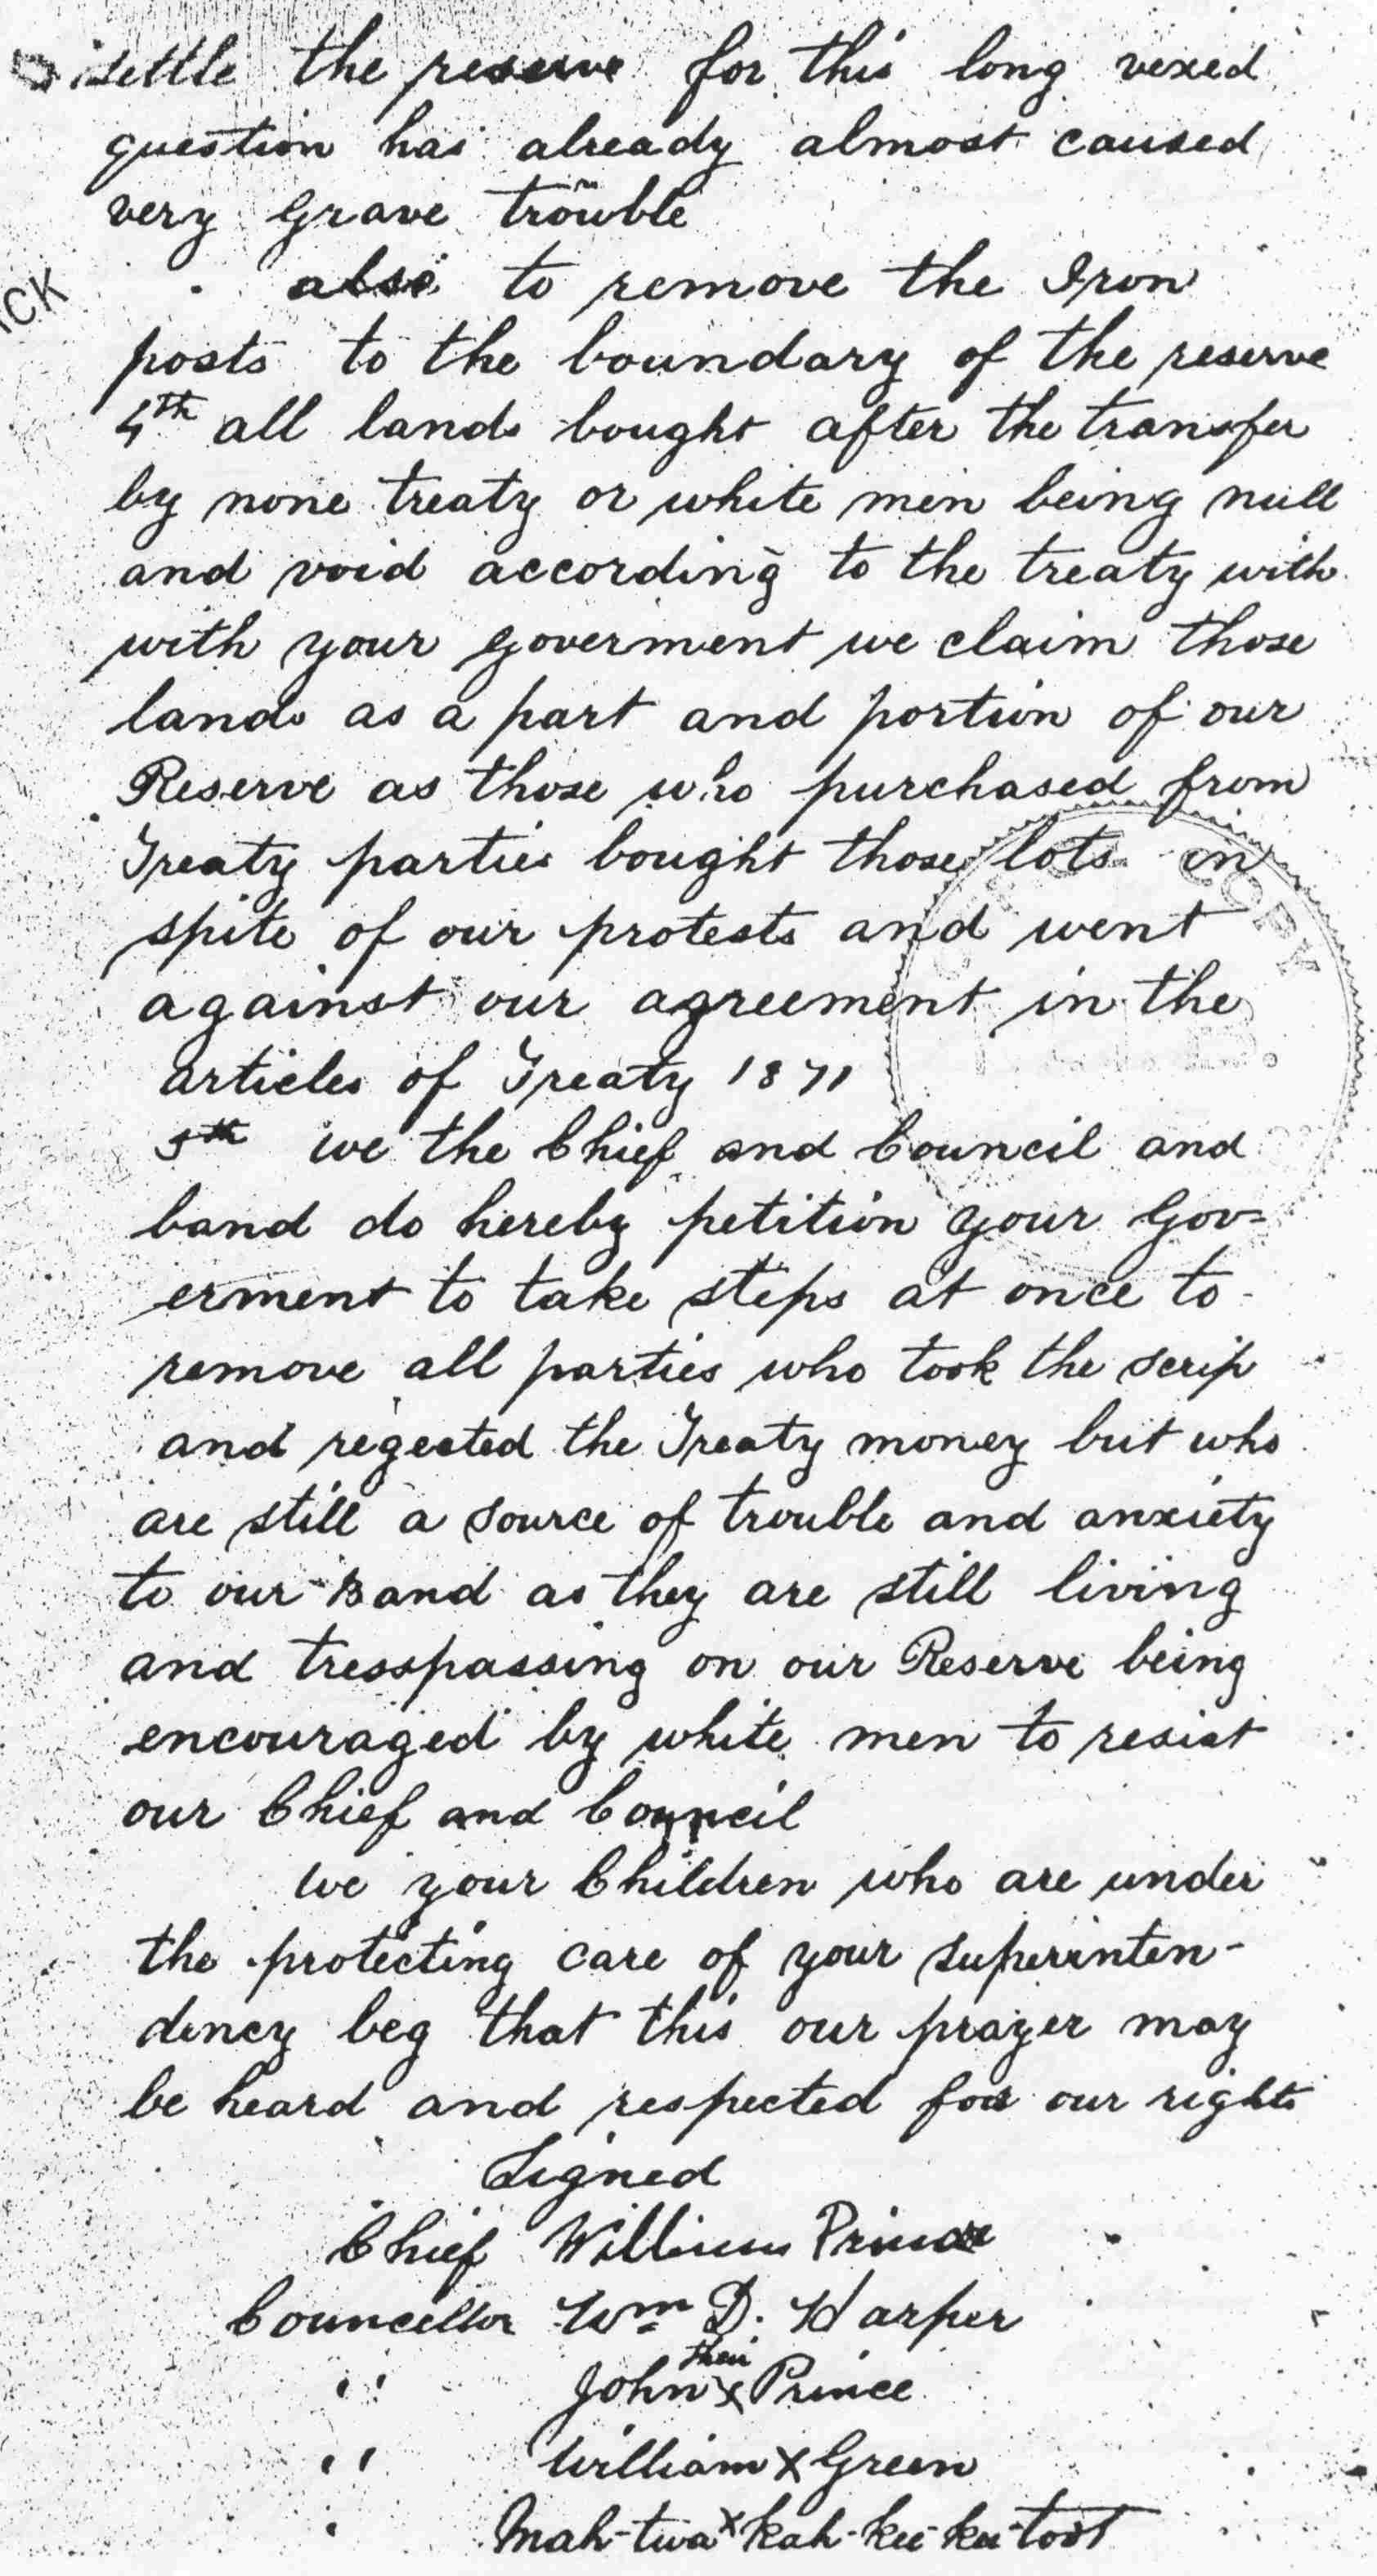 settle the reserve for this long vexed
question has already almost caused
very Grave trouble
also to remove the Iron
posts to the boundary of the reserve
4th all lands bought after the transfer
by none treaty or white men being null
and void according to the treaty with
with your goverment we claim those
lands as a part and portion of our
Reserve as those who purchased from
Treaty parties bought those lots in
spite of our protests and went
against our agreement in the
articles of Treaty 1871
5th we the Chief and Council and
band do hereby petition your Gov-
erment to take steps at once to
remove all parties who took the scrip
and regected the Treaty money but who
are still a source of trouble and anxiety
to our Band as they are still living
and tresspassing on our Reserve being
encouraged by white men to resist
our Chief and Council
we your Children who are under
the protecting care of your superinten-
dency beg that this our prayer may
be heard and respected for our rights
Signed
Chief William Prince
Councellor Wm D. Harper
their
" John x Prince
" William X Green
" Mah-twa x kah-kee-ka-toot
COPY